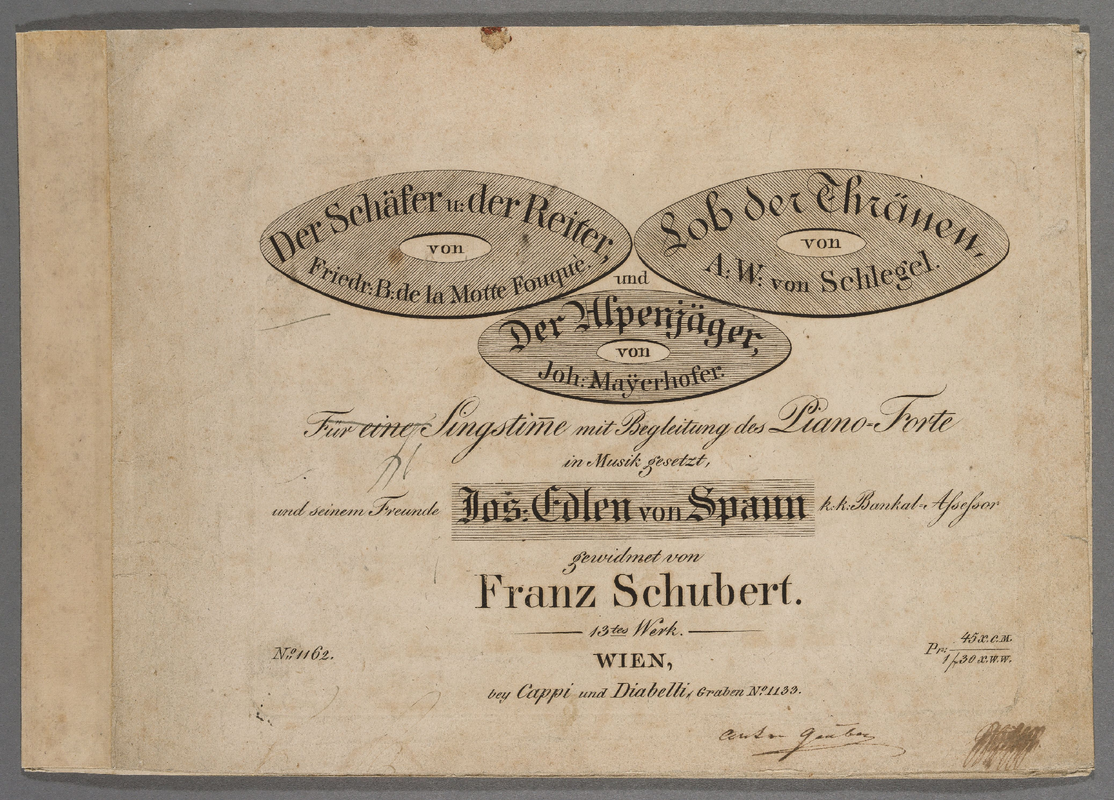 Der Schäfer u: der Reiter,
von
Friedr: B: de la Motte Fouqué.
Lob der Thränen,
von
A: W: von Schlegel.
und
Der Alpenjäger,
von
Joh: Maÿerhofer.
Für eine Singstim̄e mit Begleitung des Piano=Forte
in Musik gesetzt,
und seinem Freunde Jos: Edlen von Spaun k. k: Bankal=Aſseſsor
gewidmet von
Franz Schubert.
13tes Werk.
No. 1162.
Pr: 45 x. C. M.
1 f 30 x. W. W.
WIEN,
bey Cappi und Diabelli, Graben No. 1133.